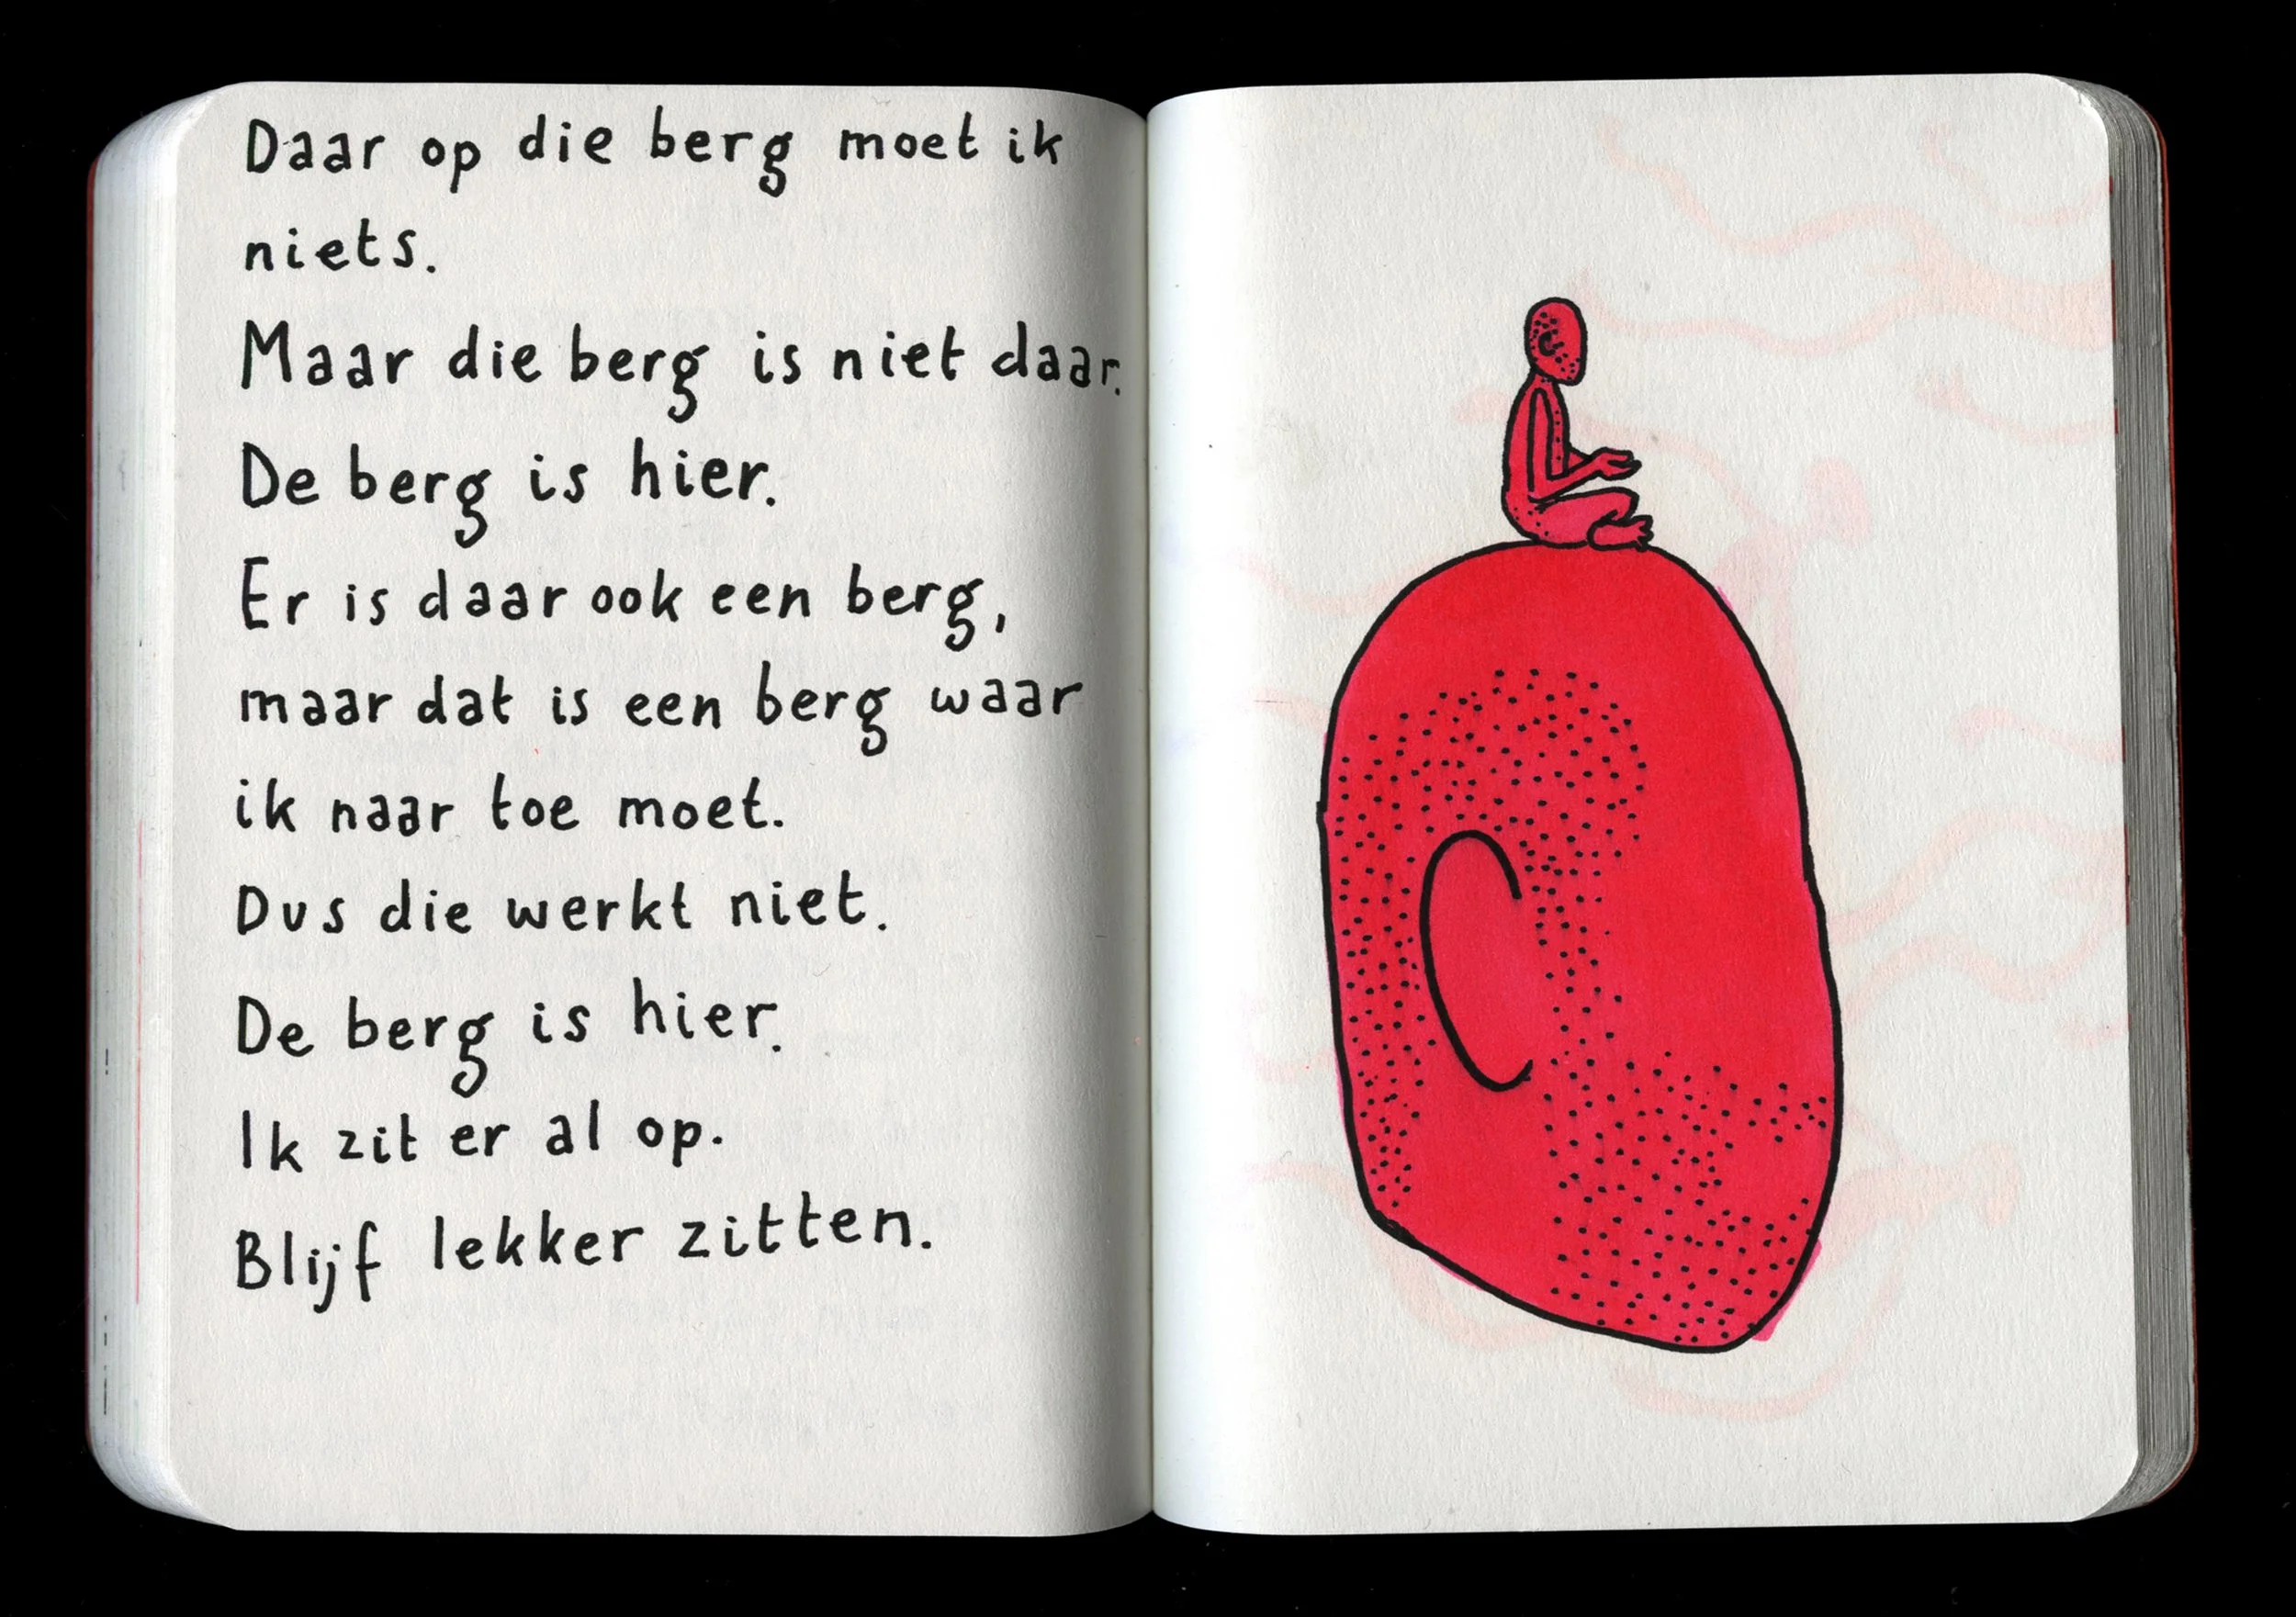 Daar op die berg moet ik
niets.
Maar die berg is niet daar.
De berg is hier.
Er is daar ook een berg,
maar dat is een berg waar
ik naar toe moet.
Dus die werkt niet.
De berg is hier.
Ik zit er al op.
Blijf lekker zitten.